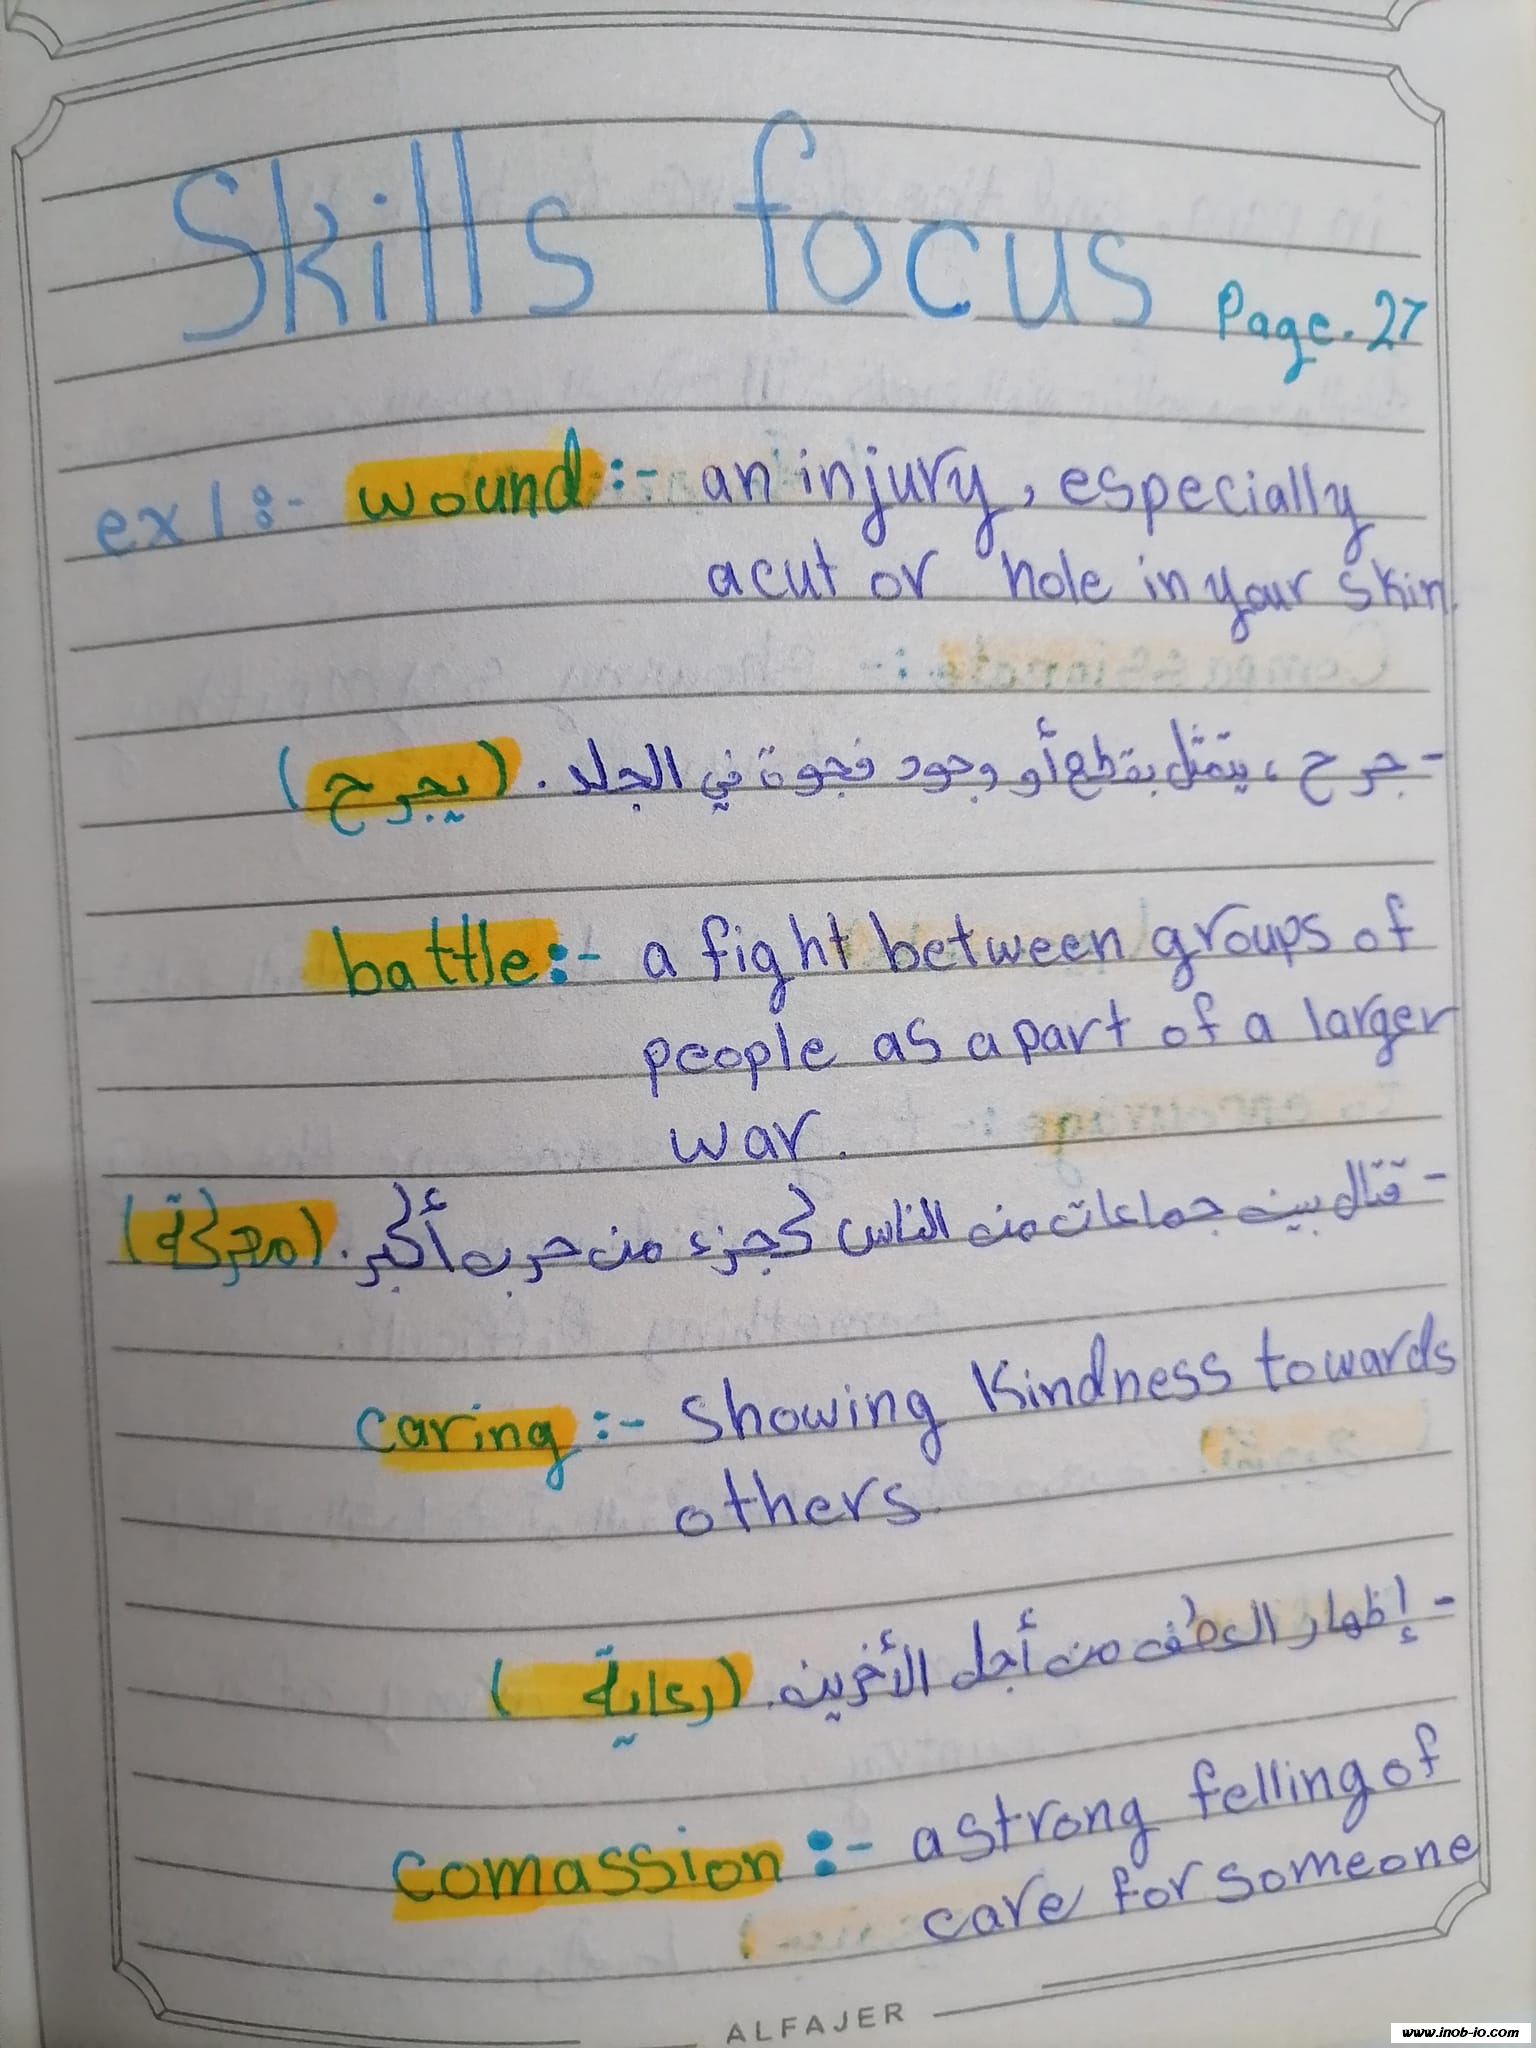 Skills focus
Page. 27
ex 1 :- wound :- an injury, especially
a cut or hole in your skin.
- جرح ، يتمثل بقطع أو وجود فجوة في الجلد . (يجرح)
battle :- a fight between groups of
people as a part of a larger
war.
- قتال بين جماعات من الناس كجزء من حرب أكبر . (معركة)
caring :- showing kindness towards
others.
- إظهار العطف من أجل الأخرين . (رعاية)
comassion :- a strong felling of
care for someone
ALFAJER
www.inob-io.com